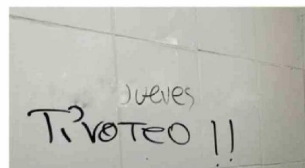 Jueves
Tiroteo !!